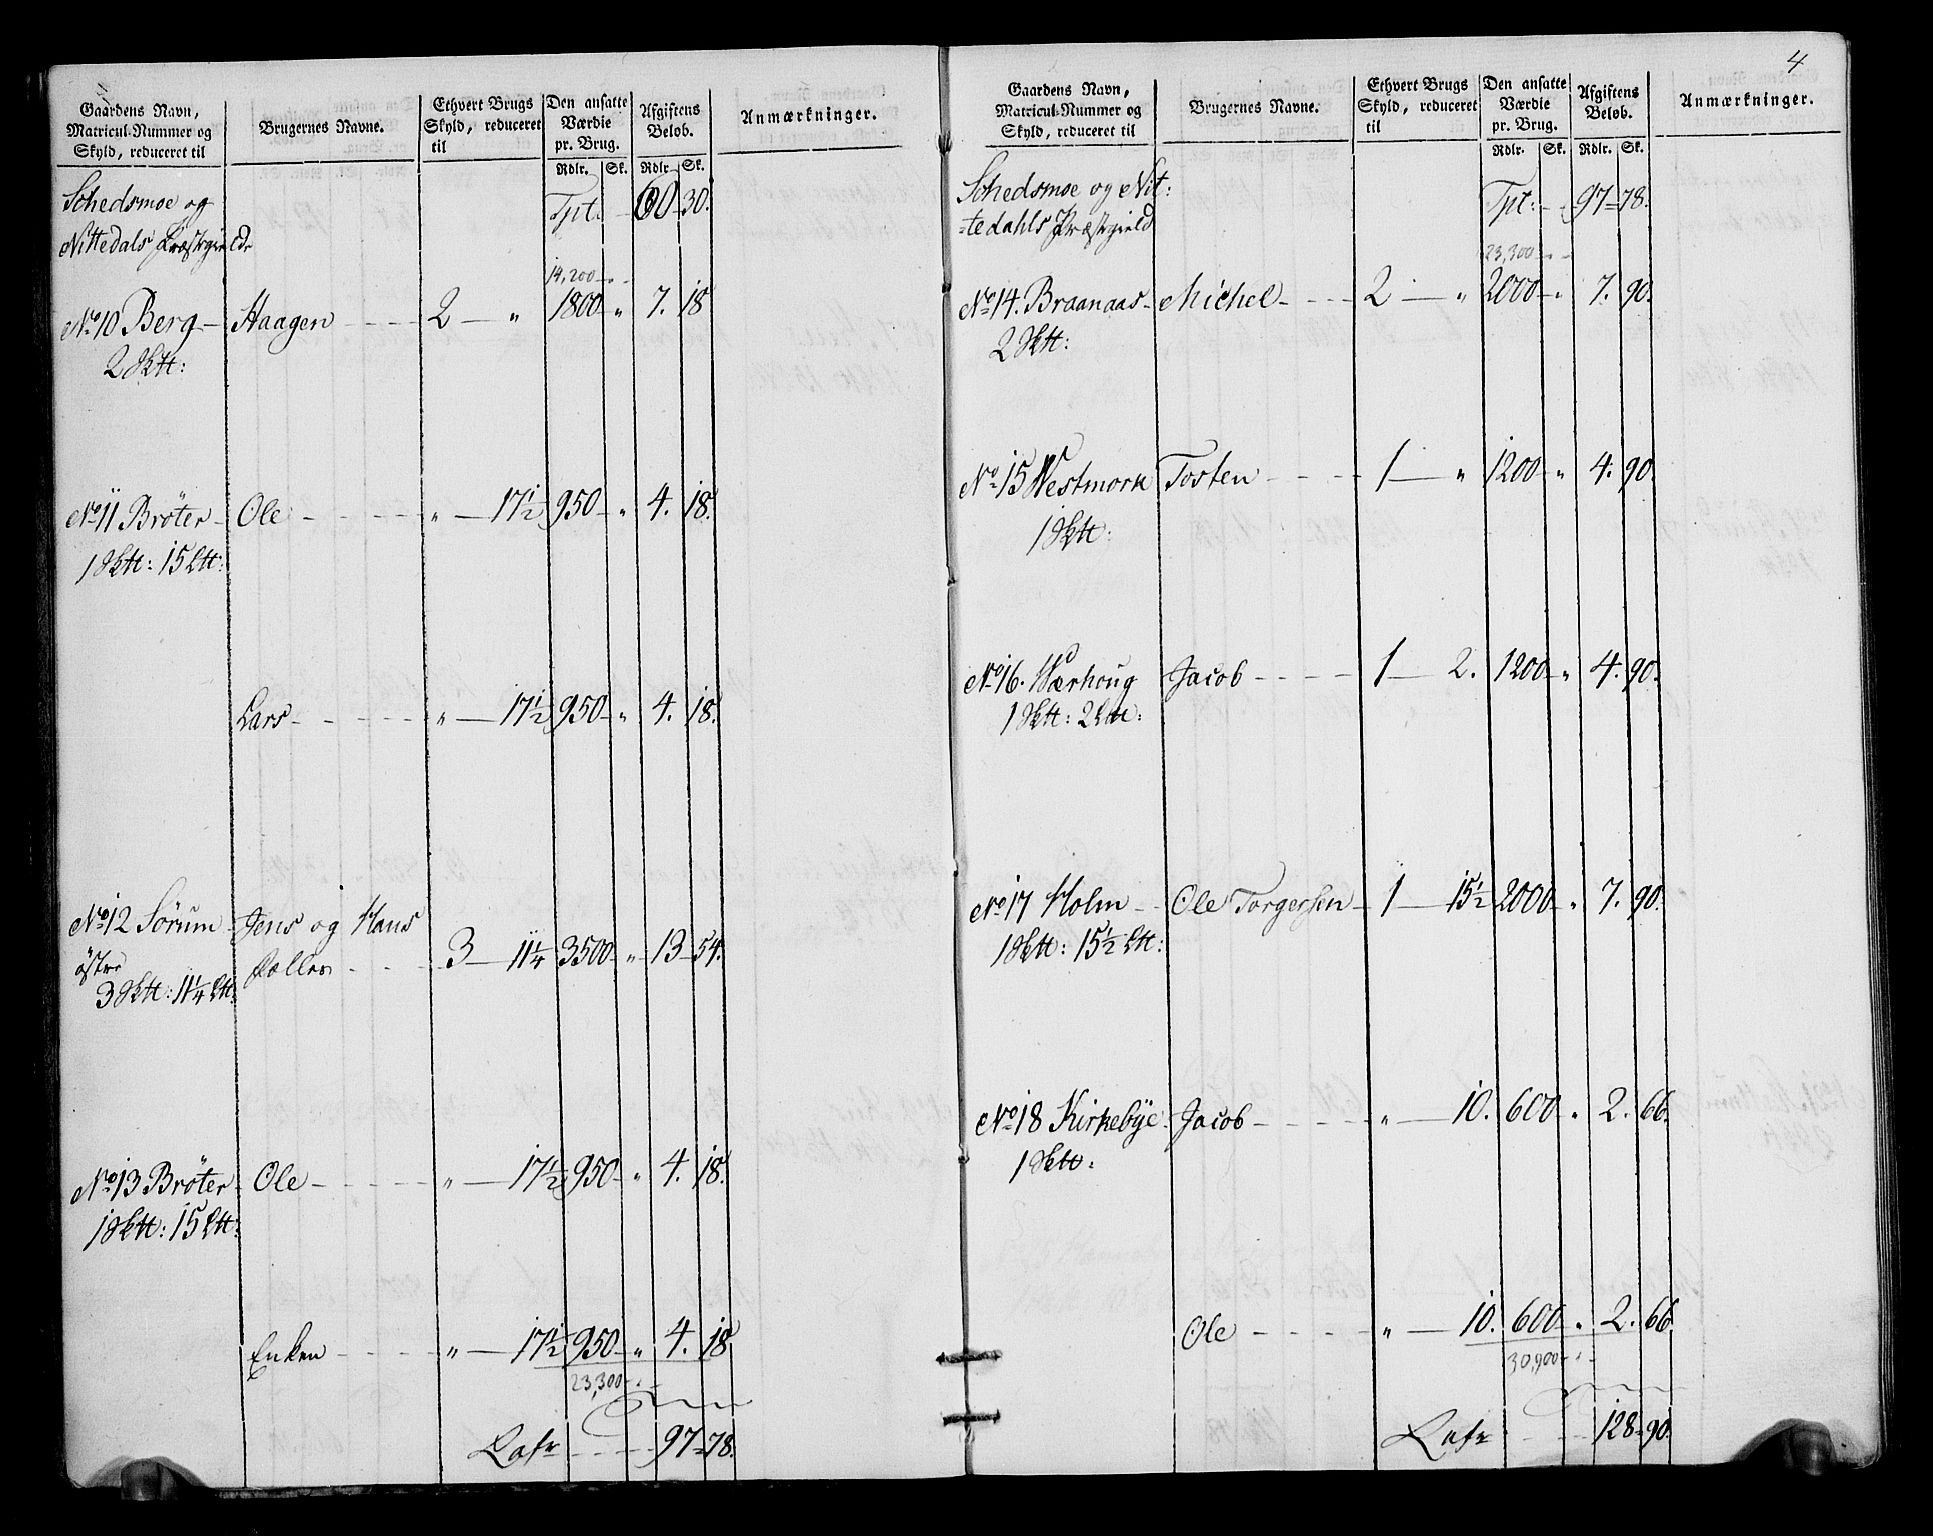 Gaardens Navn,
Matricul-Nummer og
Skyld, reduceret til
Brugernes Navne.
Ethvert Brugs
Skyld, reduceret
til
Den ansatte
Værdie
pr. Brug.
Rdlr. Sk.
Afgiftens
Beløb.
Rdlr. Sk.
Anmærkninger.
Schedsmoe og
Nittedals Præstegield
Tpt: 60 30.
14,200
No 10 Berg Haagen 2 " 1800 " 7. 18
2 Sktt:
No 11 Brøter Ole " 17½ 950 " 4. 18.
1 Sktt: 15 Ltt:
Lars " 17½ 950 " 4. 18.
No 12 Sørum Jens og Hans
østre Fælles 3 11¼ 3500 " 13 54.
3 Sktt: 11¼ Ltt:
No 13 Brøter Ole " 17½ 950 " 4. 18.
1 Sktt: 15 Ltt:
Enken " 17½ 950 " 4. 18
23,300
Lafr 97 78.
4
Gaardens Navn,
Matricul-Nummer og
Skyld, reduceret til
Brugernes Navne.
Ethvert Brugs
Skyld, reduceret
til
Den ansatte
Værdie
pr. Brug.
Rdlr. Sk.
Afgiftens
Beløb.
Rdlr. Sk.
Anmærkninger.
Schedsmoe og Nit:
=tedahls Præstegield
Tpt: 97 78.
23,300
No 14. Braanaas Michel 2 " 2000 " 7. 90.
2 Sktt:
No 15 Westmork Tosten 1 " 1200 " 4. 90.
1 Sktt:
No 16. Wærhoug Jacob 1 2. 1200 " 4. 90.
1 Sktt: 2 Ltt:
No 17 Holm Ole Torgersen 1 15½ 2000 " 7. 90.
1 Sktt: 15½ Ltt:
No 18 Kirkebÿe Jacob " 10. 600 " 2. 66.
1 Sktt:
Ole " 10. 600 " 2. 66.
30,900
Lafr 128 90.